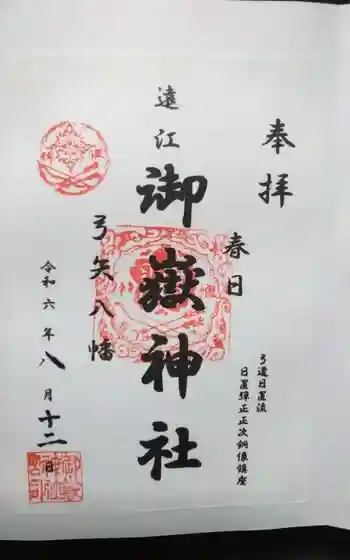 奉拝
弓道日置流
日置弾正正次銅像鎮座
春日
遠江
御嶽神社
弓矢八幡
令和六年八月十二日